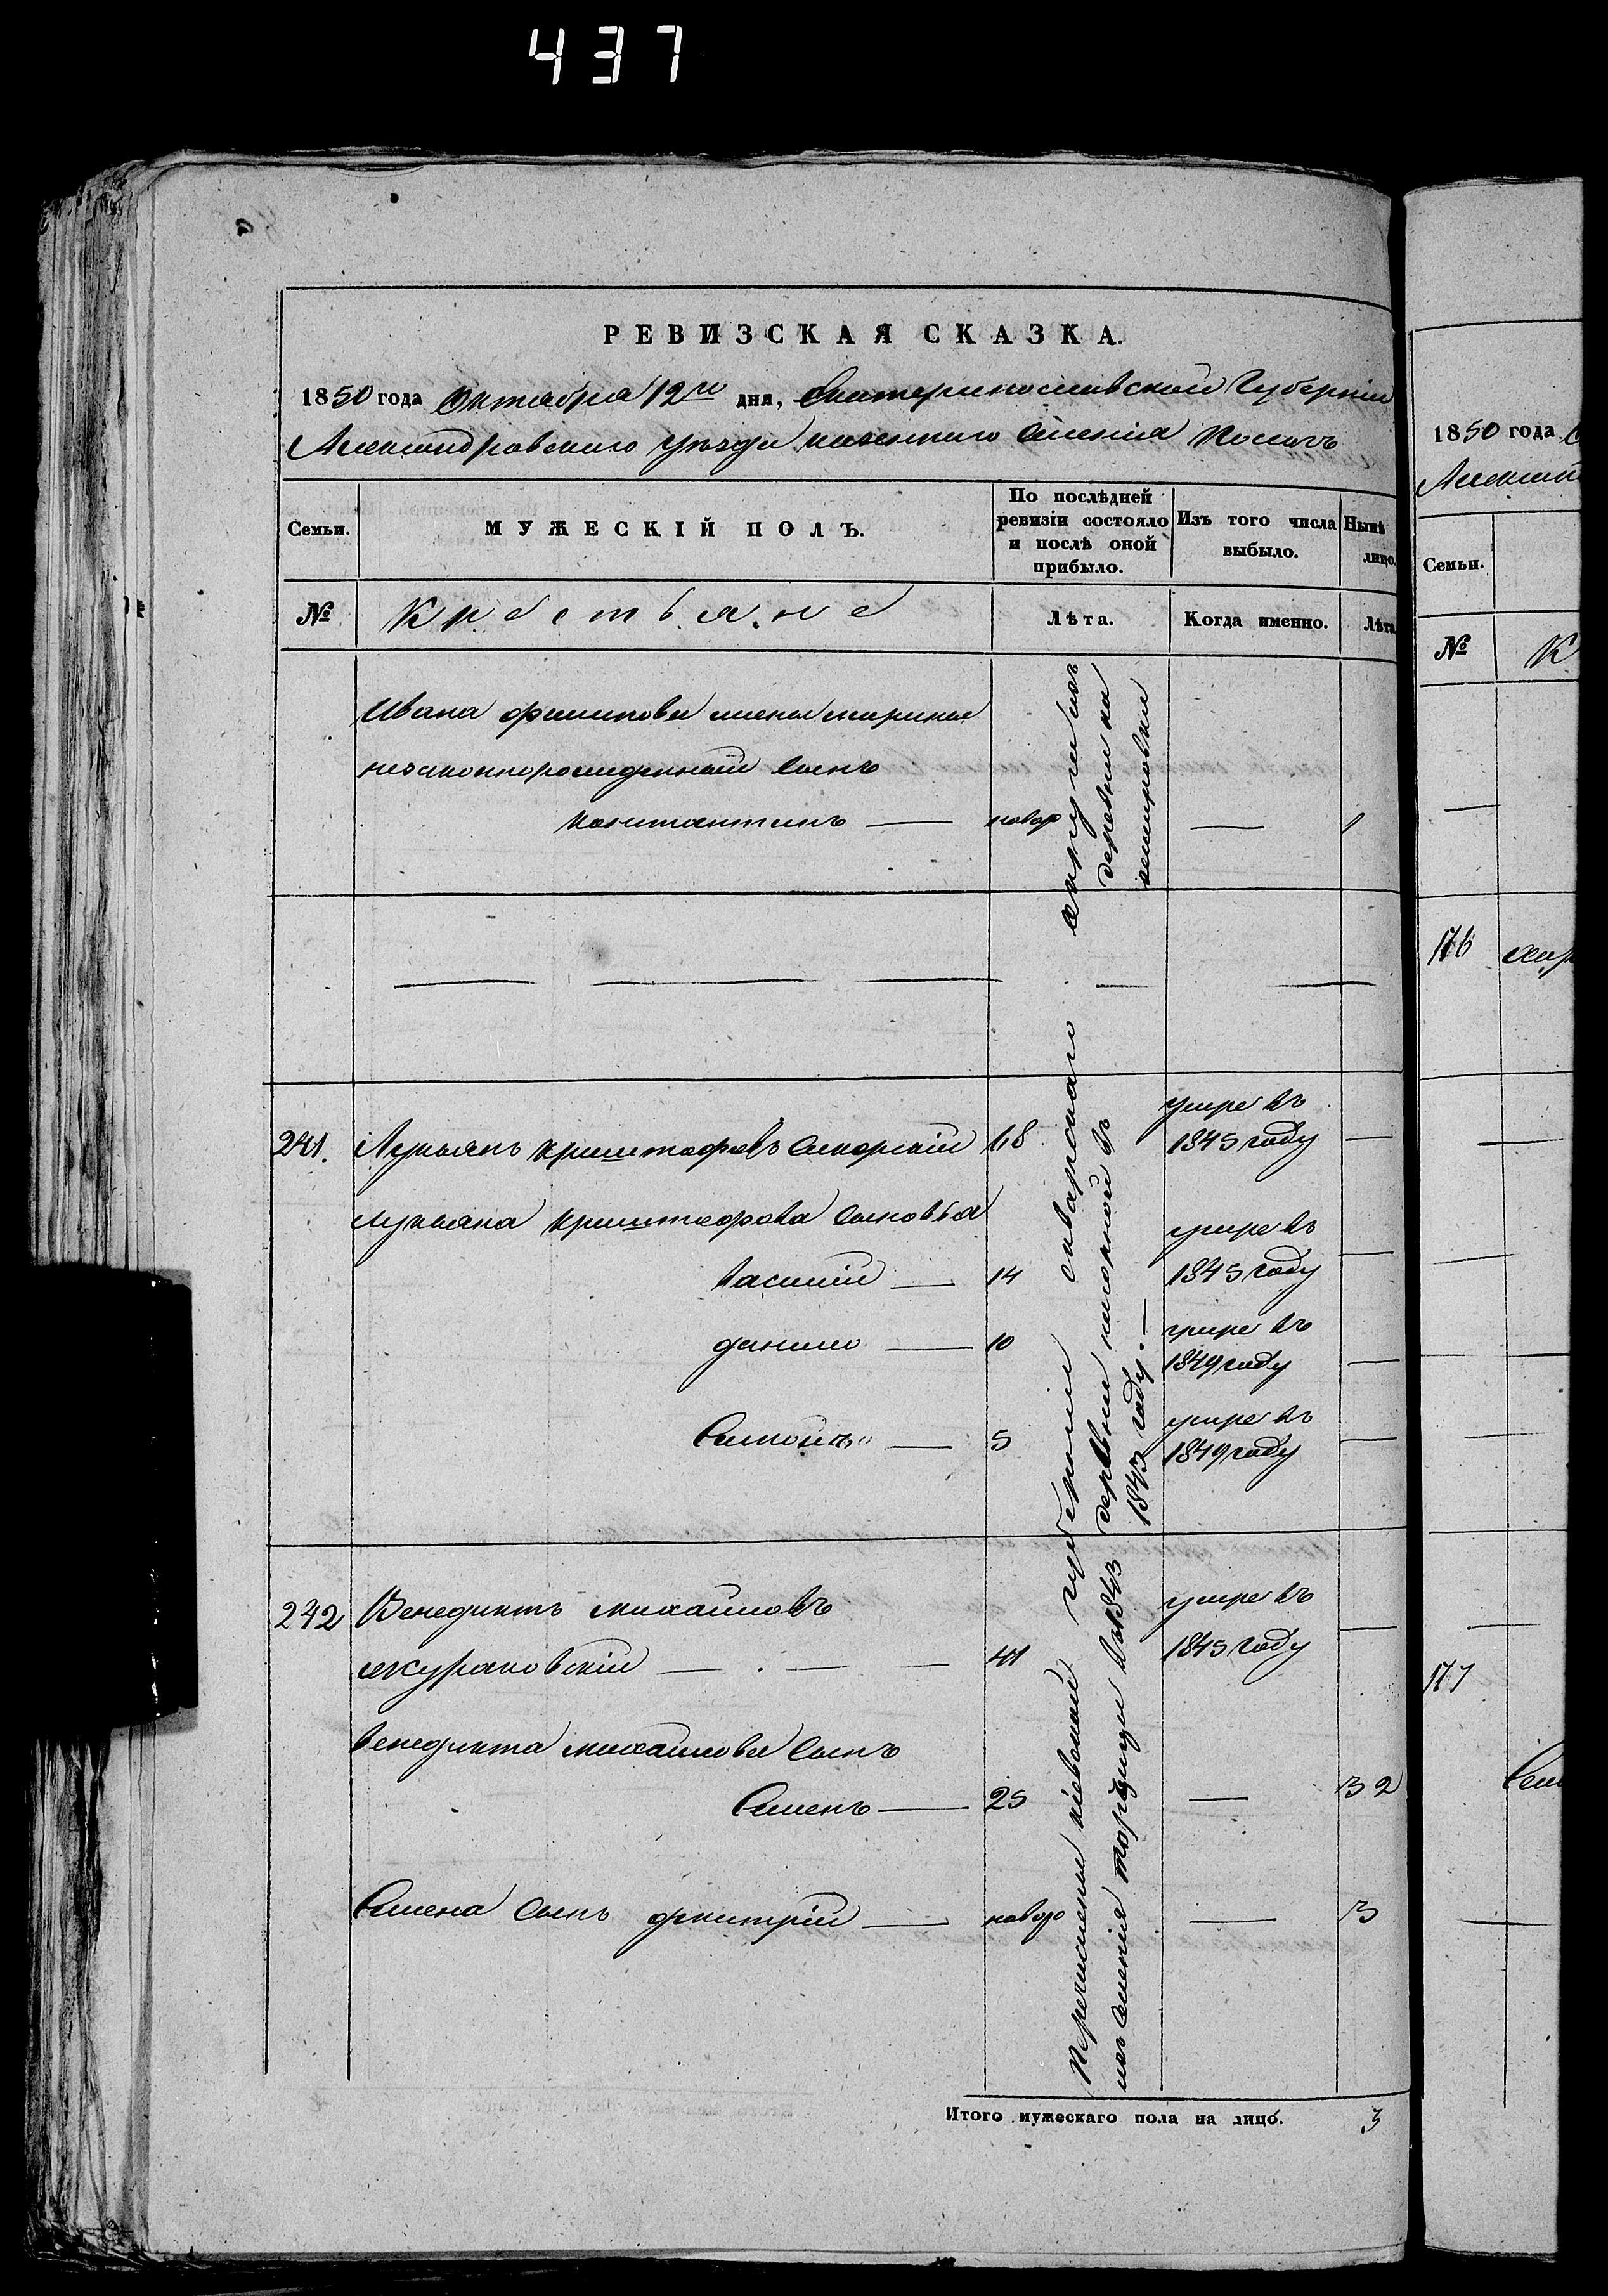 437
РЕВИЗСКАЯ СКАЗКА.
1850 года Октября 12го дня, Екатеринославской Губерніи
Александровскаго уѣзда казеннаго селенія
Семьи.
МУЖЕСКІЙ ПОЛЪ.
По послѣдней ревизіи состояло и послѣ оной прибыло.
Изъ того числа выбыло.
Нынѣ лицо.
№
Крестьяне
Лѣта.
Когда именно.
Лѣта
Ивана жены
незаконнорожденный сынъ
Константинъ — новор — 1
241. Лукьянъ Криштофовъ 48 умре въ 1845 году —
Лукьяна Криштофова сыновья
Василій — 14 умре въ 1845 году —
Данило — 10 умре въ 1849 году —
5 умре въ 1849 году —
242 Венедиктъ Михайловъ
41 умре въ 1845 году —
Венедикта Михайлова сынъ
Семенъ — 25 — 32
Семена сынъ Дмитрій — новоро — 3
Перечислены Кіевской губерніи
изъ селенія въ 1843
деревни въ
1843 году. —
Итого мужескаго пола на лицо. 3
1850 года
Семьи.
№
К
176
177